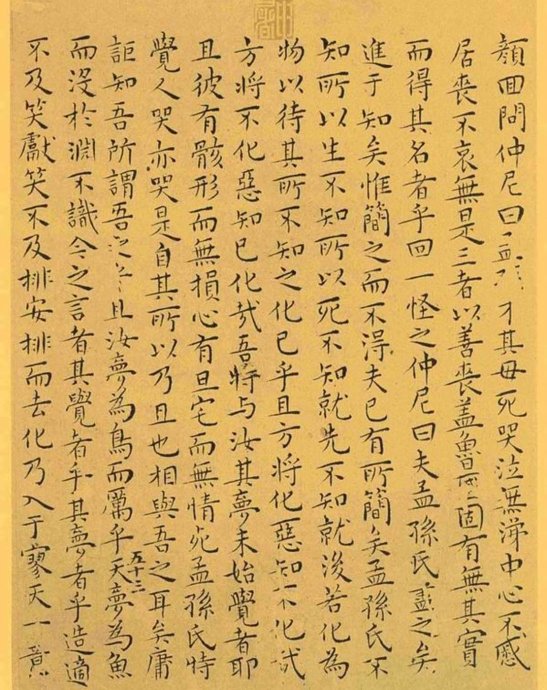 顏回問仲尼曰孟才其母死哭泣無涕中心不慼
居喪不哀無是三者以善喪蓋魯固有無其實
而得其名者乎回一怪之仲尼曰夫孟孫氏盡之矣
進于知矣惟簡之而不得夫已有所簡矣孟孫氏不
知所以生不知所以死不知就先不知就後若化為
物以待其所不知之化已乎且方將化惡知不化哉
方將不化惡知已化哉吾特与汝其夢未始覺者耶
且彼有骸形而無損心有旦宅而無情死孟孫氏特
覺人哭亦哭是自其所以乃且也相與吾之耳矣庸
詎知吾所謂吾之乎且汝夢為鳥而厲乎天夢為魚
五十三
而沒於淵不識今之言者其覺者乎其夢者乎造適
不及笑獻笑不及排安排而去化乃入于寥天一